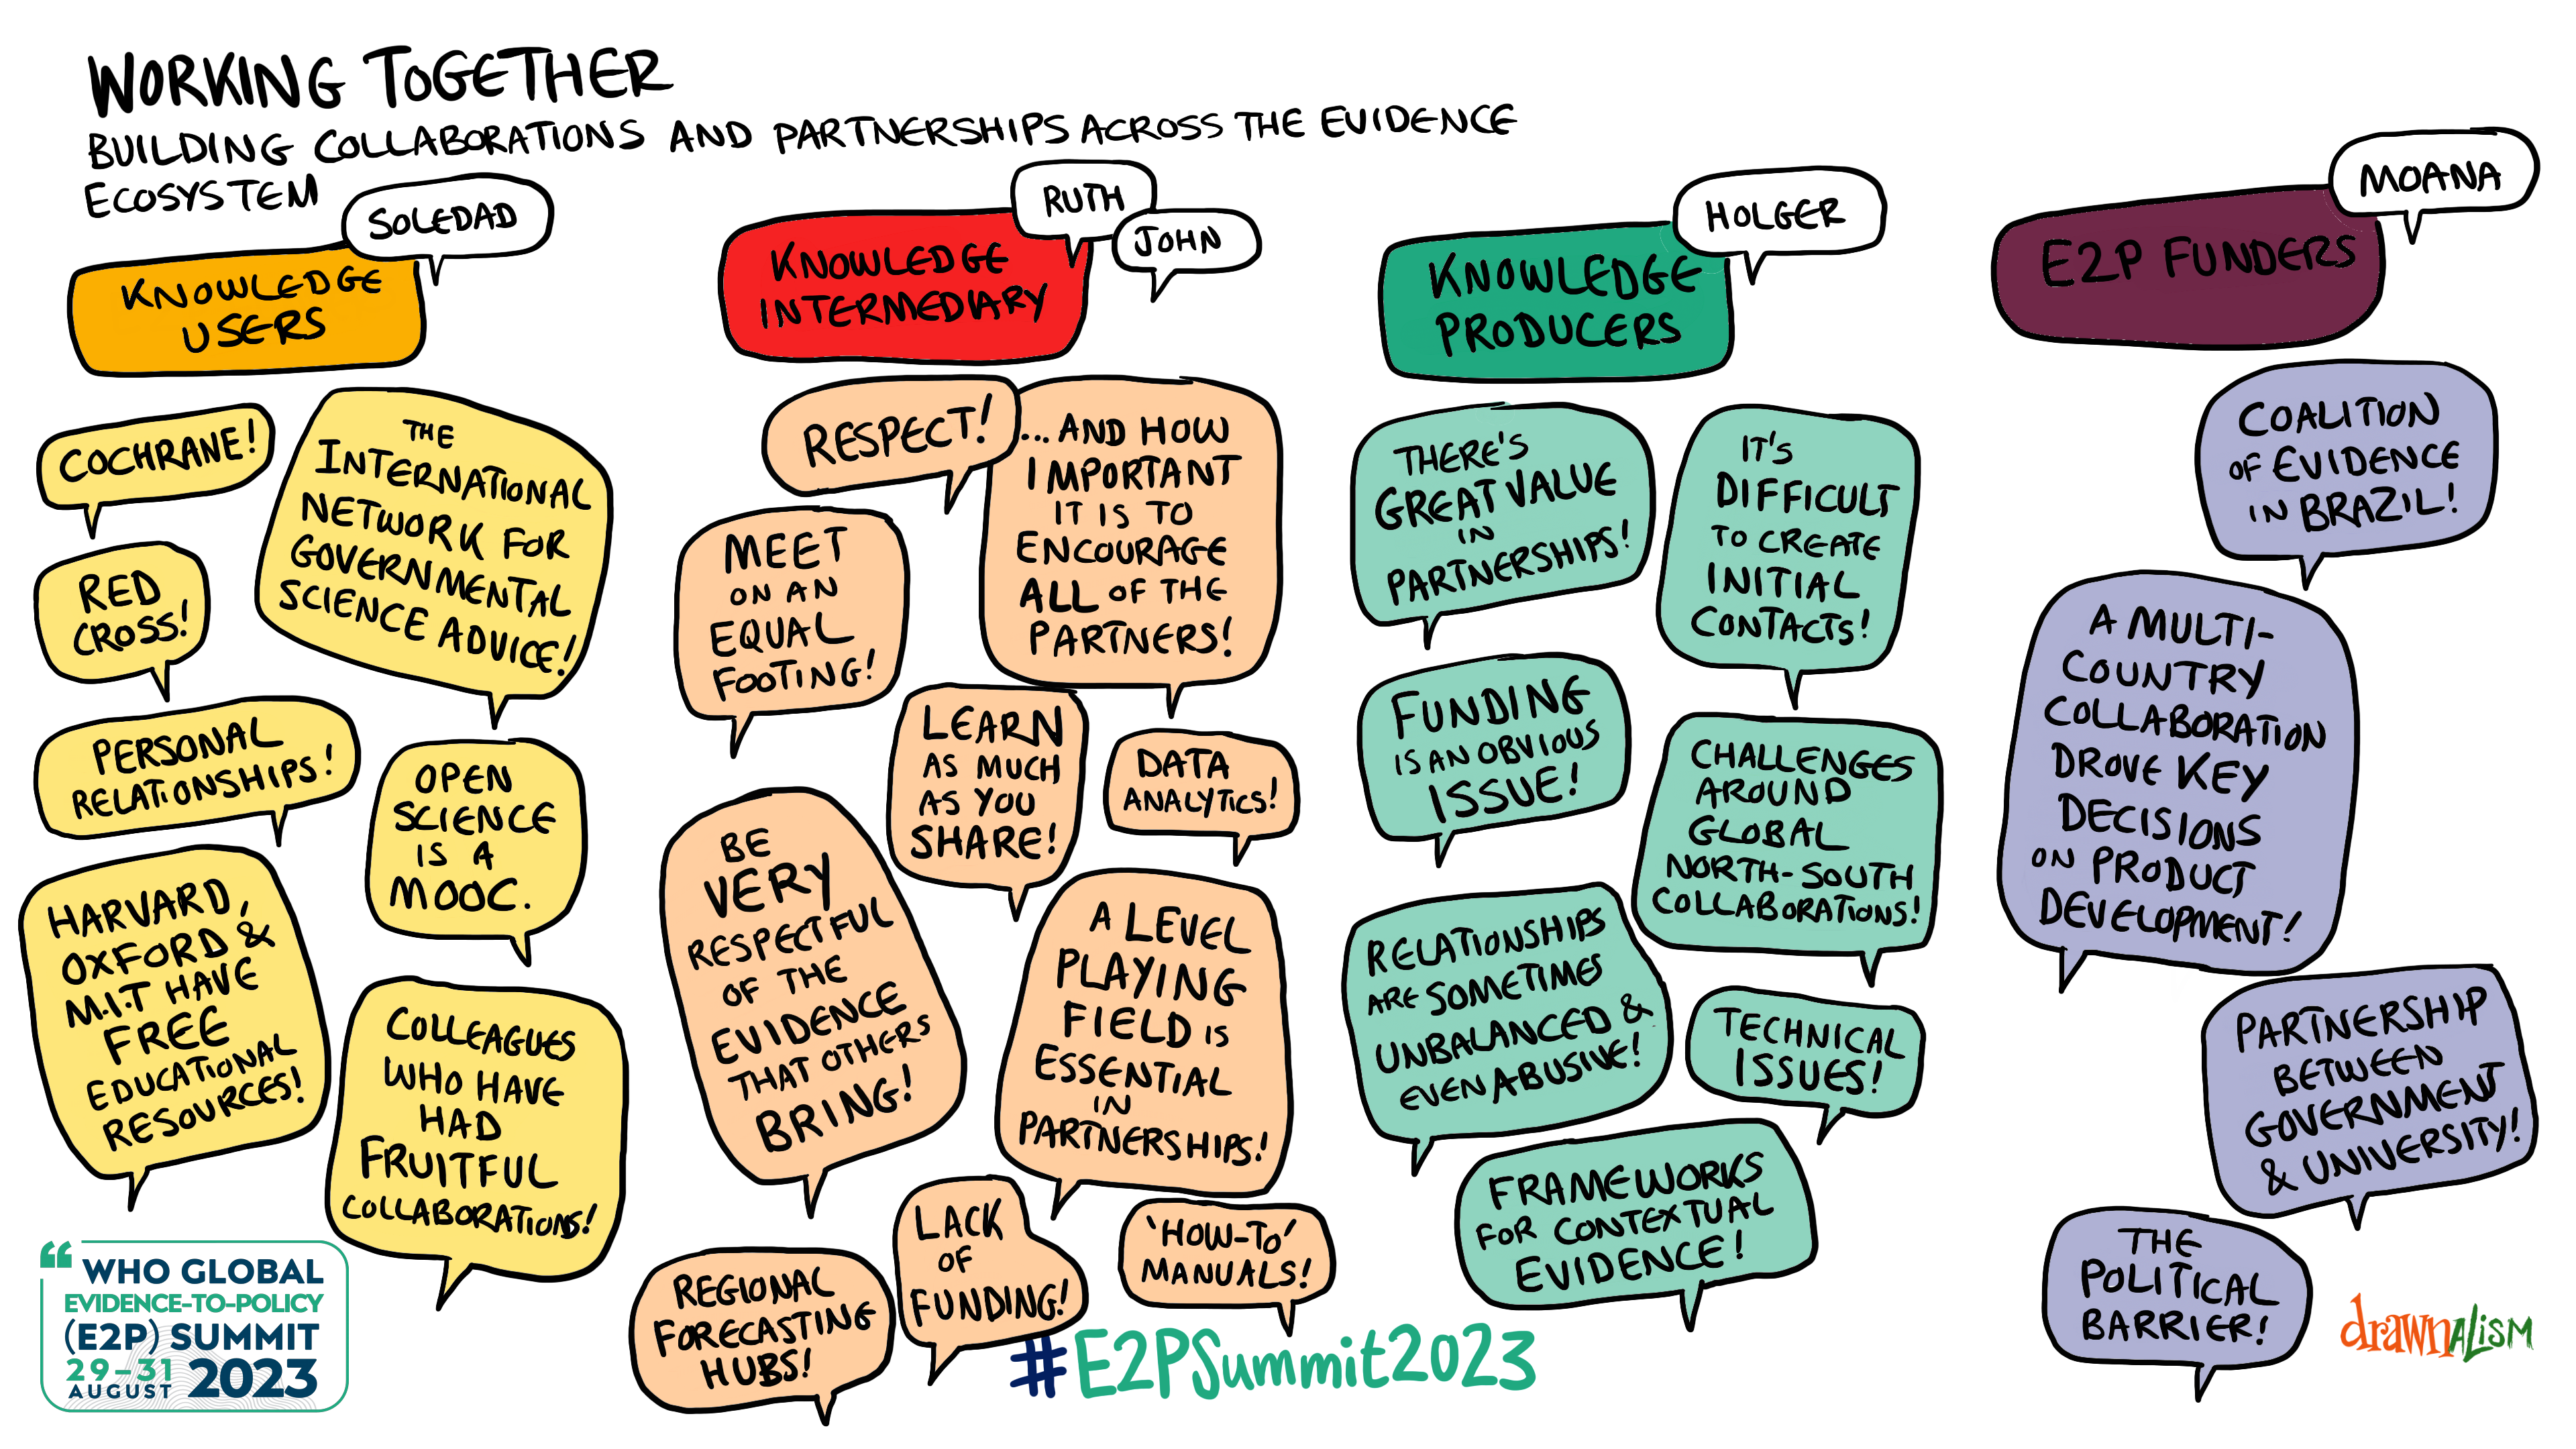 WORKING TOGETHER
BUILDING COLLABORATIONS AND PARTNERSHIPS ACROSS THE EVIDENCE
ECOSYSTEM
SOLEDAD
KNOWLEDGE
USERS
COCHRANE!
THE
INTERNATIONAL
NETWORK FOR
GOVERNMENTAL
SCIENCE ADVICE!
RED
CROSS!
PERSONAL
RELATIONSHIPS!
OPEN
SCIENCE
IS A
MOOC.
HARVARD,
OXFORD &
M.I.T HAVE
FREE
EDUCATIONAL
RESOURCES!
COLLEAGUES
WHO HAVE
HAD
FRUITFUL
COLLABORATIONS!
RUTH
JOHN
KNOWLEDGE
INTERMEDIARY
RESPECT!
...AND HOW
IMPORTANT
IT IS TO
ENCOURAGE
ALL OF THE
PARTNERS!
MEET
ON AN
EQUAL
FOOTING!
LEARN
AS MUCH
AS YOU
SHARE!
DATA
ANALYTICS!
BE
VERY
RESPECTFUL
OF THE
EVIDENCE
THAT OTHERS
BRING!
A LEVEL
PLAYING
FIELD IS
ESSENTIAL
IN
PARTNERSHIPS!
REGIONAL
FORECASTING
HUBS!
LACK
OF
FUNDING!
'HOW-TO'
MANUALS!
HOLGER
KNOWLEDGE
PRODUCERS
THERE'S
GREAT VALUE
IN
PARTNERSHIPS!
IT'S
DIFFICULT
TO CREATE
INITIAL
CONTACTS!
FUNDING
IS AN OBVIOUS
ISSUE!
CHALLENGES
AROUND
GLOBAL
NORTH-SOUTH
COLLABORATIONS!
RELATIONSHIPS
ARE SOMETIMES
UNBALANCED &
EVEN ABUSIVE!
TECHNICAL
ISSUES!
FRAMEWORKS
FOR CONTEXTUAL
EVIDENCE!
MOANA
E2P FUNDERS
COALITION
OF EVIDENCE
IN BRAZIL!
A MULTI-
COUNTRY
COLLABORATION
DROVE KEY
DECISIONS
ON PRODUCT
DEVELOPMENT!
PARTNERSHIP
BETWEEN
GOVERNMENT
& UNIVERSITY!
THE
POLITICAL
BARRIER!
“ WHO GLOBAL
EVIDENCE-TO-POLICY
(E2P) SUMMIT
29–31
AUGUST 2023
#E2PSummit2023
drawnALiSM